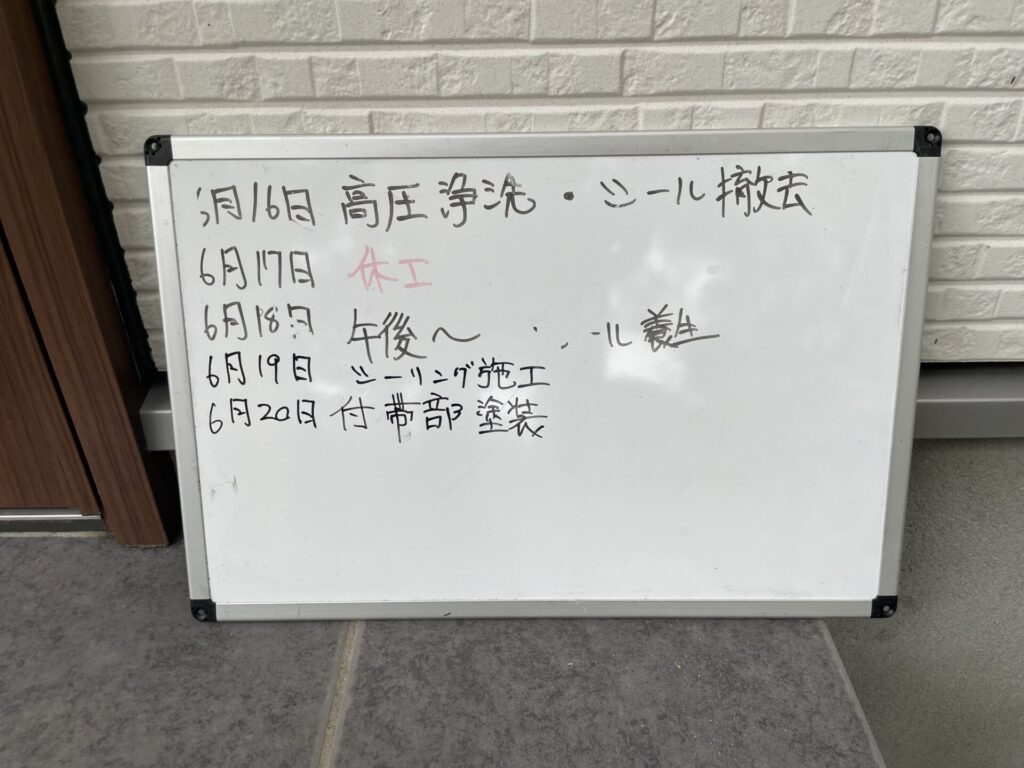 月16日 高圧浄洗・シール撤去
6月17日 休工
6月18日 午後～ ール養生
6月19日 シーリング施工
6月20日 付帯部塗装